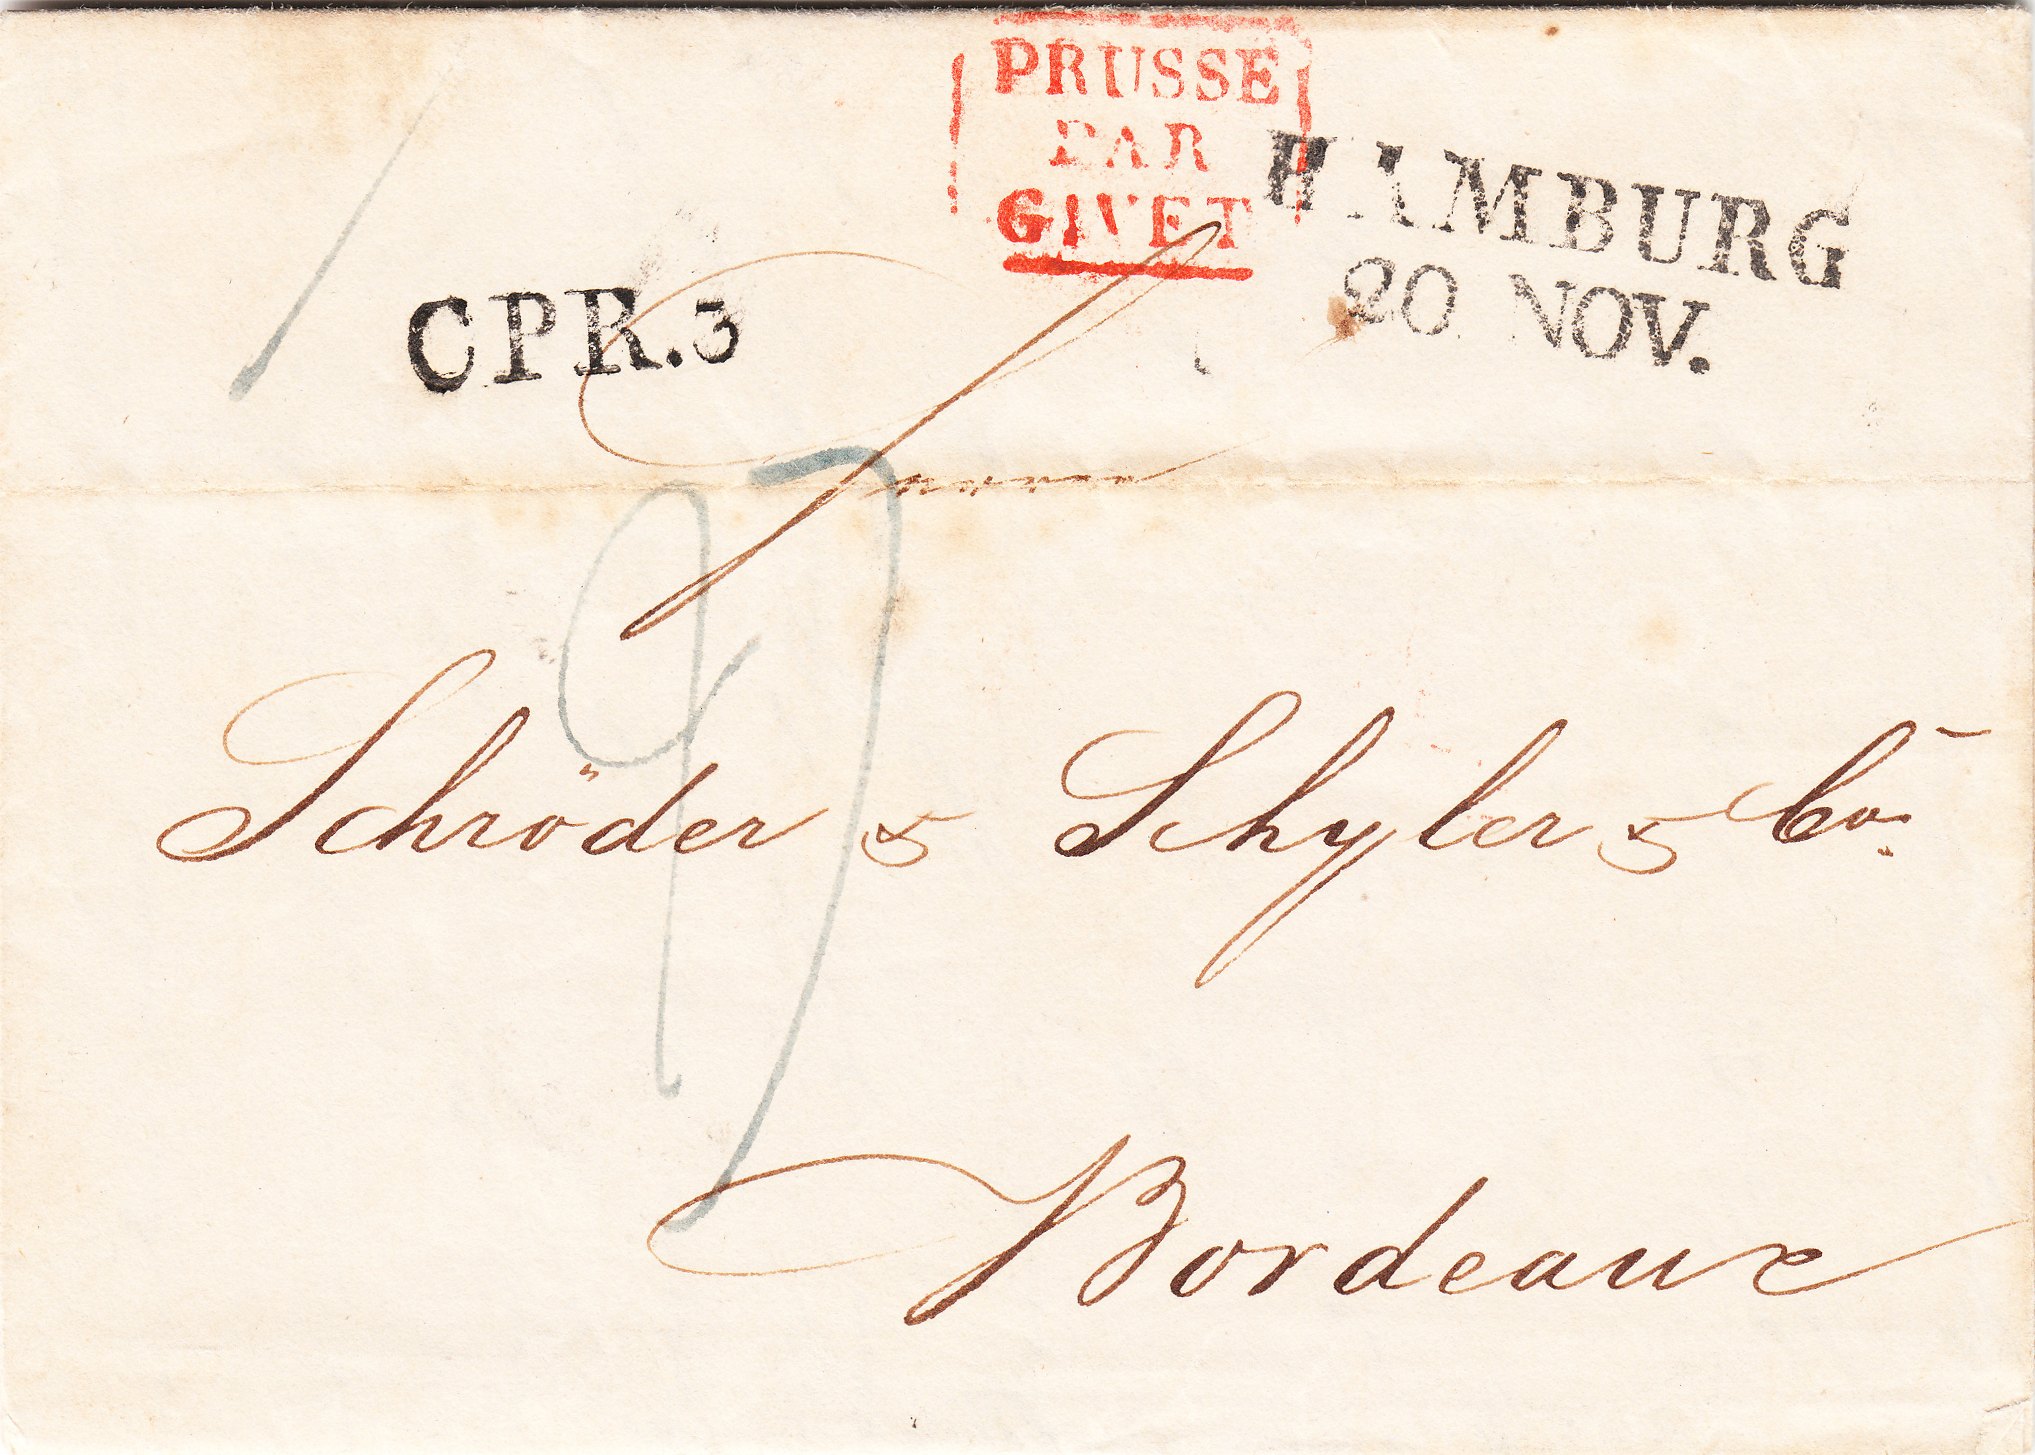 PRUSSE
PAR
GIVET
HAMBURG
20 NOV.
CPR.3
Schröder & Schÿler & Co.
Bordeaux